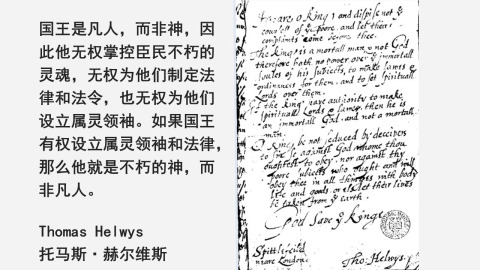 国王是凡人，而非神，因
此他无权掌控臣民不朽的
灵魂，无权为他们制定法
律和法令，也无权为他们
设立属灵领袖。如果国王
有权设立属灵领袖和法律，
那么他就是不朽的神，而
非凡人。
Thomas Helwys
托马斯·赫尔维斯
Heare o King, and dispise not ye
counsell of ye poore, and let their
complaints come before thee.
The King is a mortall man, & not God
therefore hath no power over ye immortall
soules of his subiects, to make lawes &
ordinances for them, and to set spirituall
Lords over them.
If the King have authority to make
spirituall Lords & lawes, then he is
an immortall God, and not a mortall
man.
O King, be not seduced by deceivers
to sin so against God whome thou
oughtest to obey, nor against thy
poore subiects who ought and will
obey thee in all things with body
life and goods, or els let their lives
be taken from ye earth.
God save ye King
Spittlefeild
neare London.
Tho: Helwys.